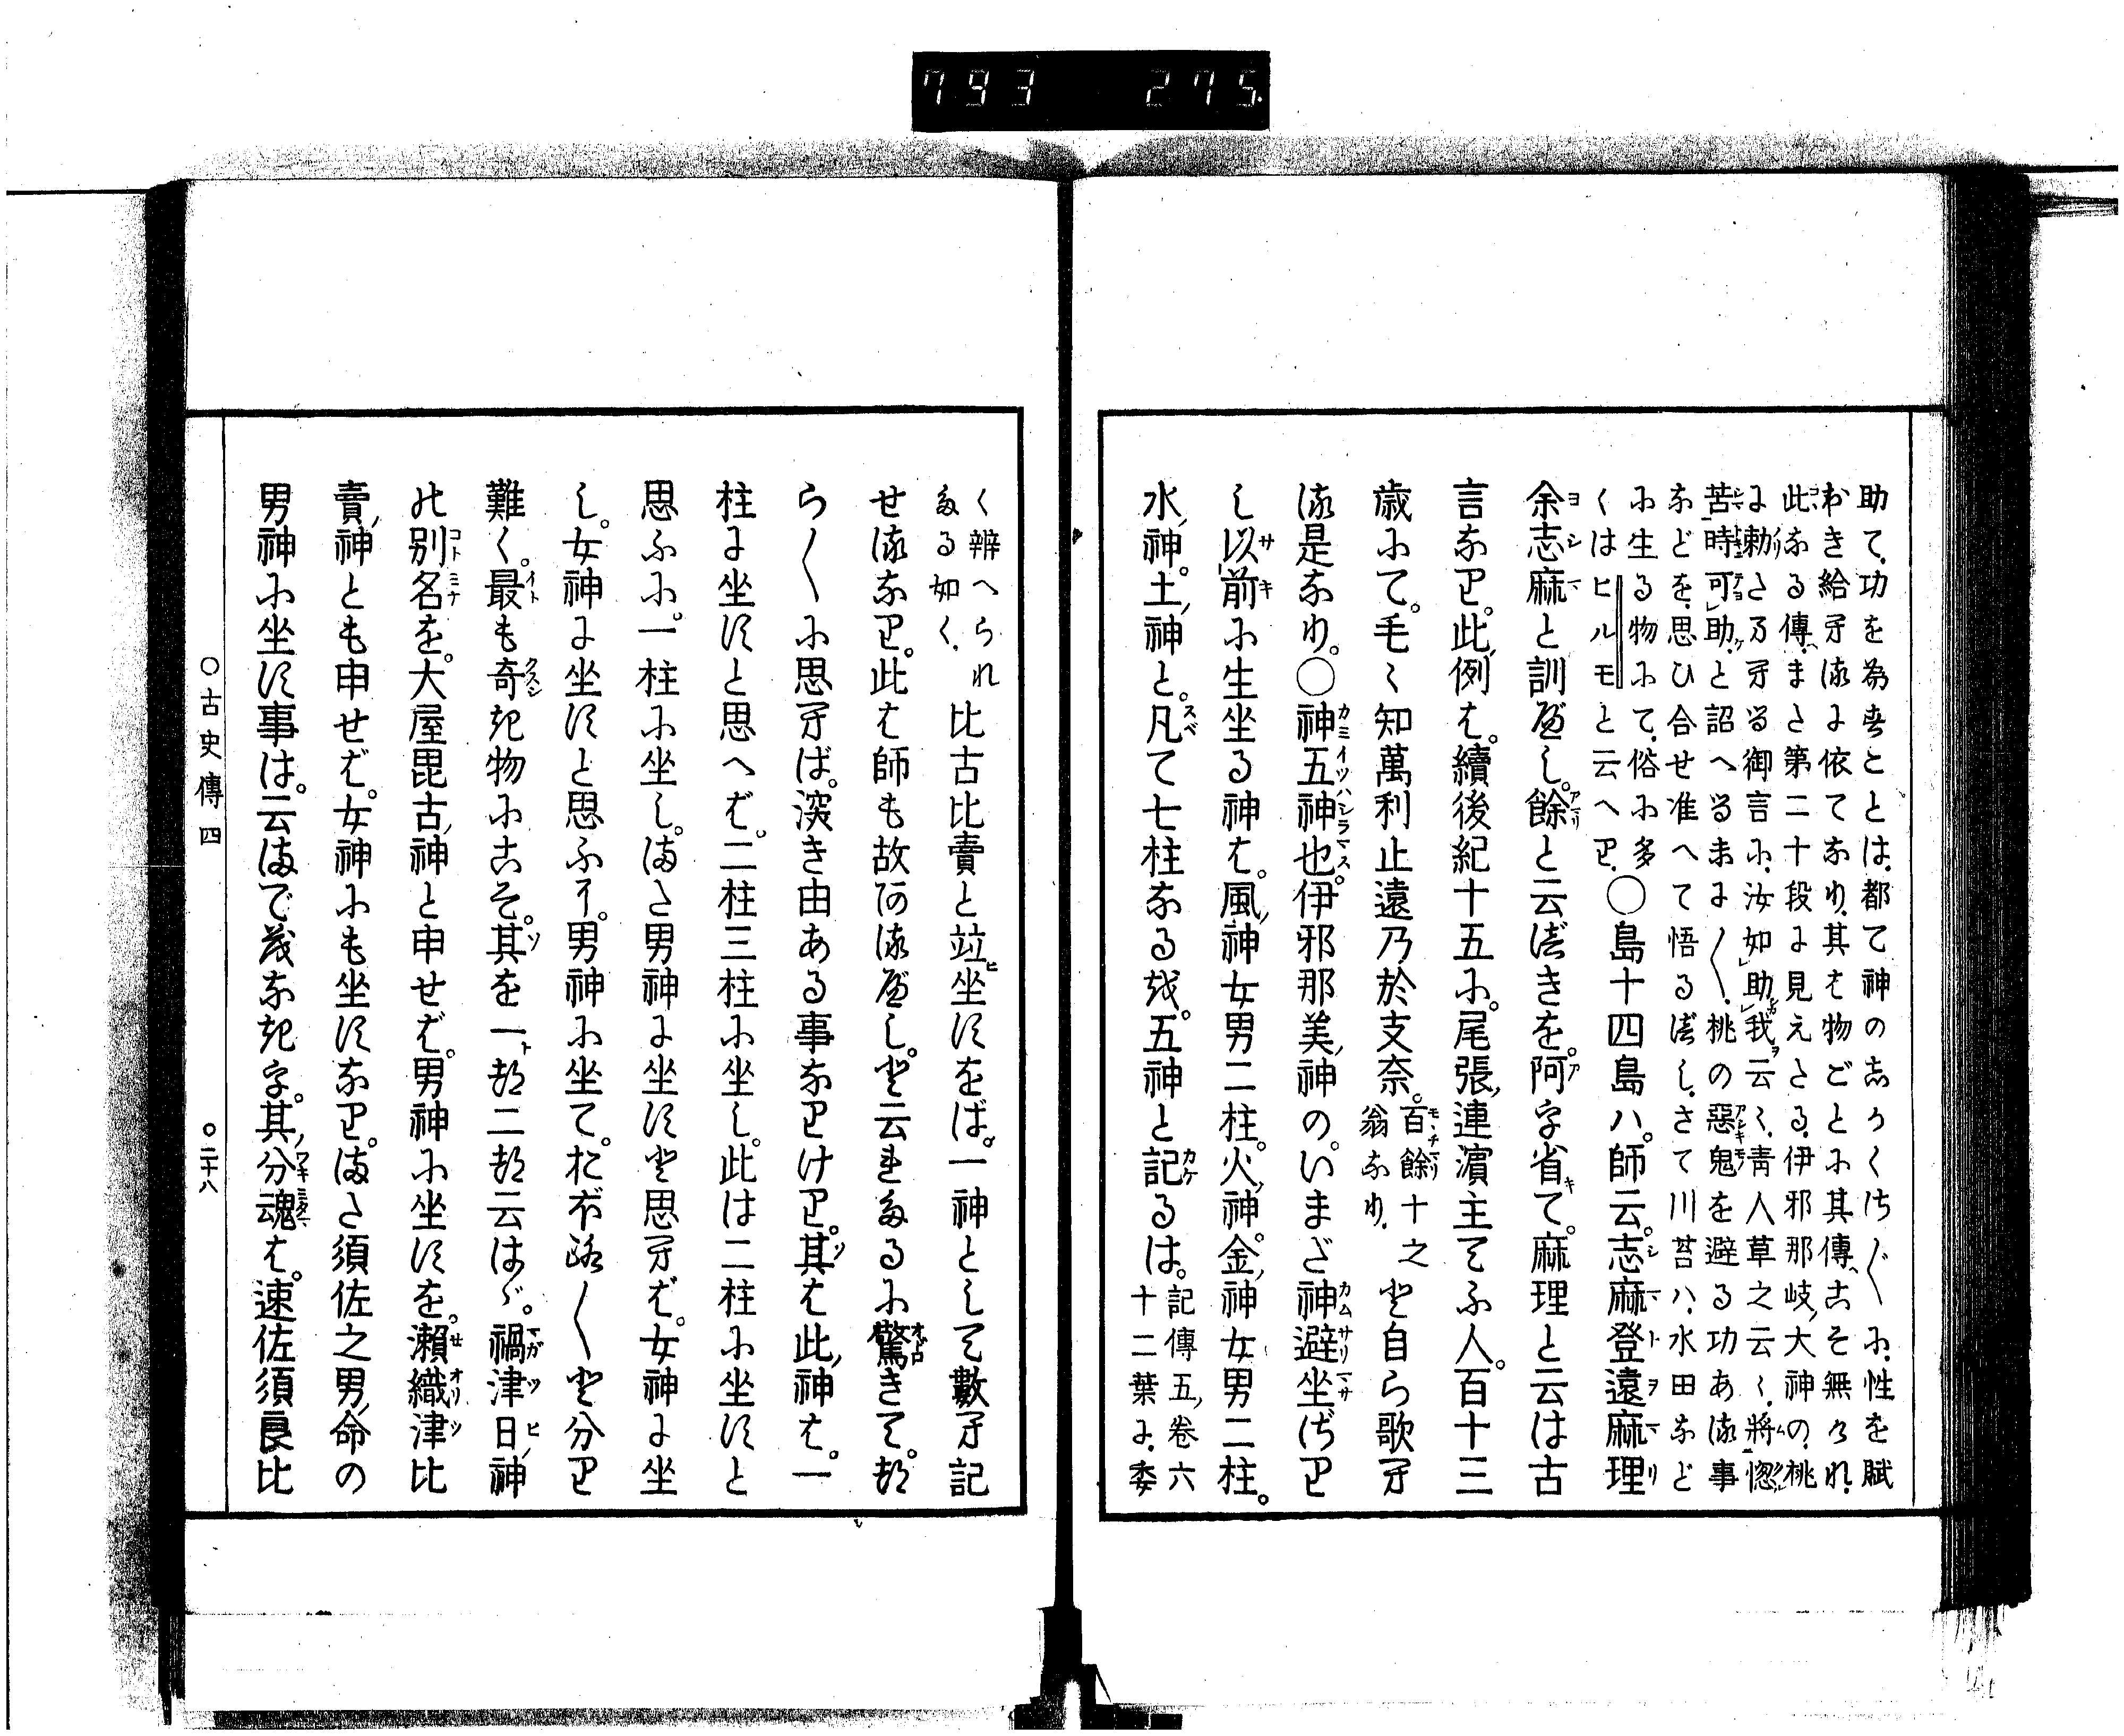 793 275.
助て、功を為すことは、都て神のあかくはぢ〴〵に、性を賦
おき給へるに依てなり、其は物ごとに其傳こそ無かれ、
此なる傳、また第二十段に見えたる、伊邪那岐大神の、桃
に勅さたまへる御言に、汝如助我云々、青人草之云々、將惚
苦時可助、と詔へるまに〳〵、桃の惡鬼を避る功ある事
などを、思ひ合せ准へて悟るべし、さて川苔ハ、水田など
に生る物にて、俗に多
くはヒルモと云へり、
○島十四島ハ。師云。志麻登遠麻理
余志麻と訓べし。餘と云べきを。阿字省て。麻理と云は古
言なり。此例は。續後紀十五に。尾張連濱主てふ人。百十三
歳にて。毛々知萬利止遠乃於支奈。百餘十之翁なり、と自ら歌へ
る是なり。○神五神也。伊邪那美神の。いまだ神避坐ざり
し以前に生坐る神は。風神女男二柱。火神。金神女男二柱。
水神。土神と。凡て七柱なるを。五神と記るは。記傳五卷六十二葉に、委
く辨へられたる如く、
比古比賣と竝坐すをば。一神として數へ記
せるなり。此は師も故あるべし。と云れたるに驚きて。熟
らく〳〵に思へば。深き由ある事なりけり。其は此神は。一
柱に坐すと思へば。二柱三柱に坐し。此は二柱に坐すと
思ふに。一柱に坐し。また男神に坐すと思へば。女神に坐
し。女神に坐すと思ふに。男神に坐て。おぼろ〳〵と分り
難く。最も奇き物にこそ。其を一つ二つ云はゞ。禍津日神
の別名を。大屋毘古神と申せば。男神に坐すを。瀬織津比
賣神とも申せば。女神にも坐すなり。また須佐之男命の
男神に坐す事は。云まで茂なき字。其分魂は。速佐須良比
○古史傳四
○二十八